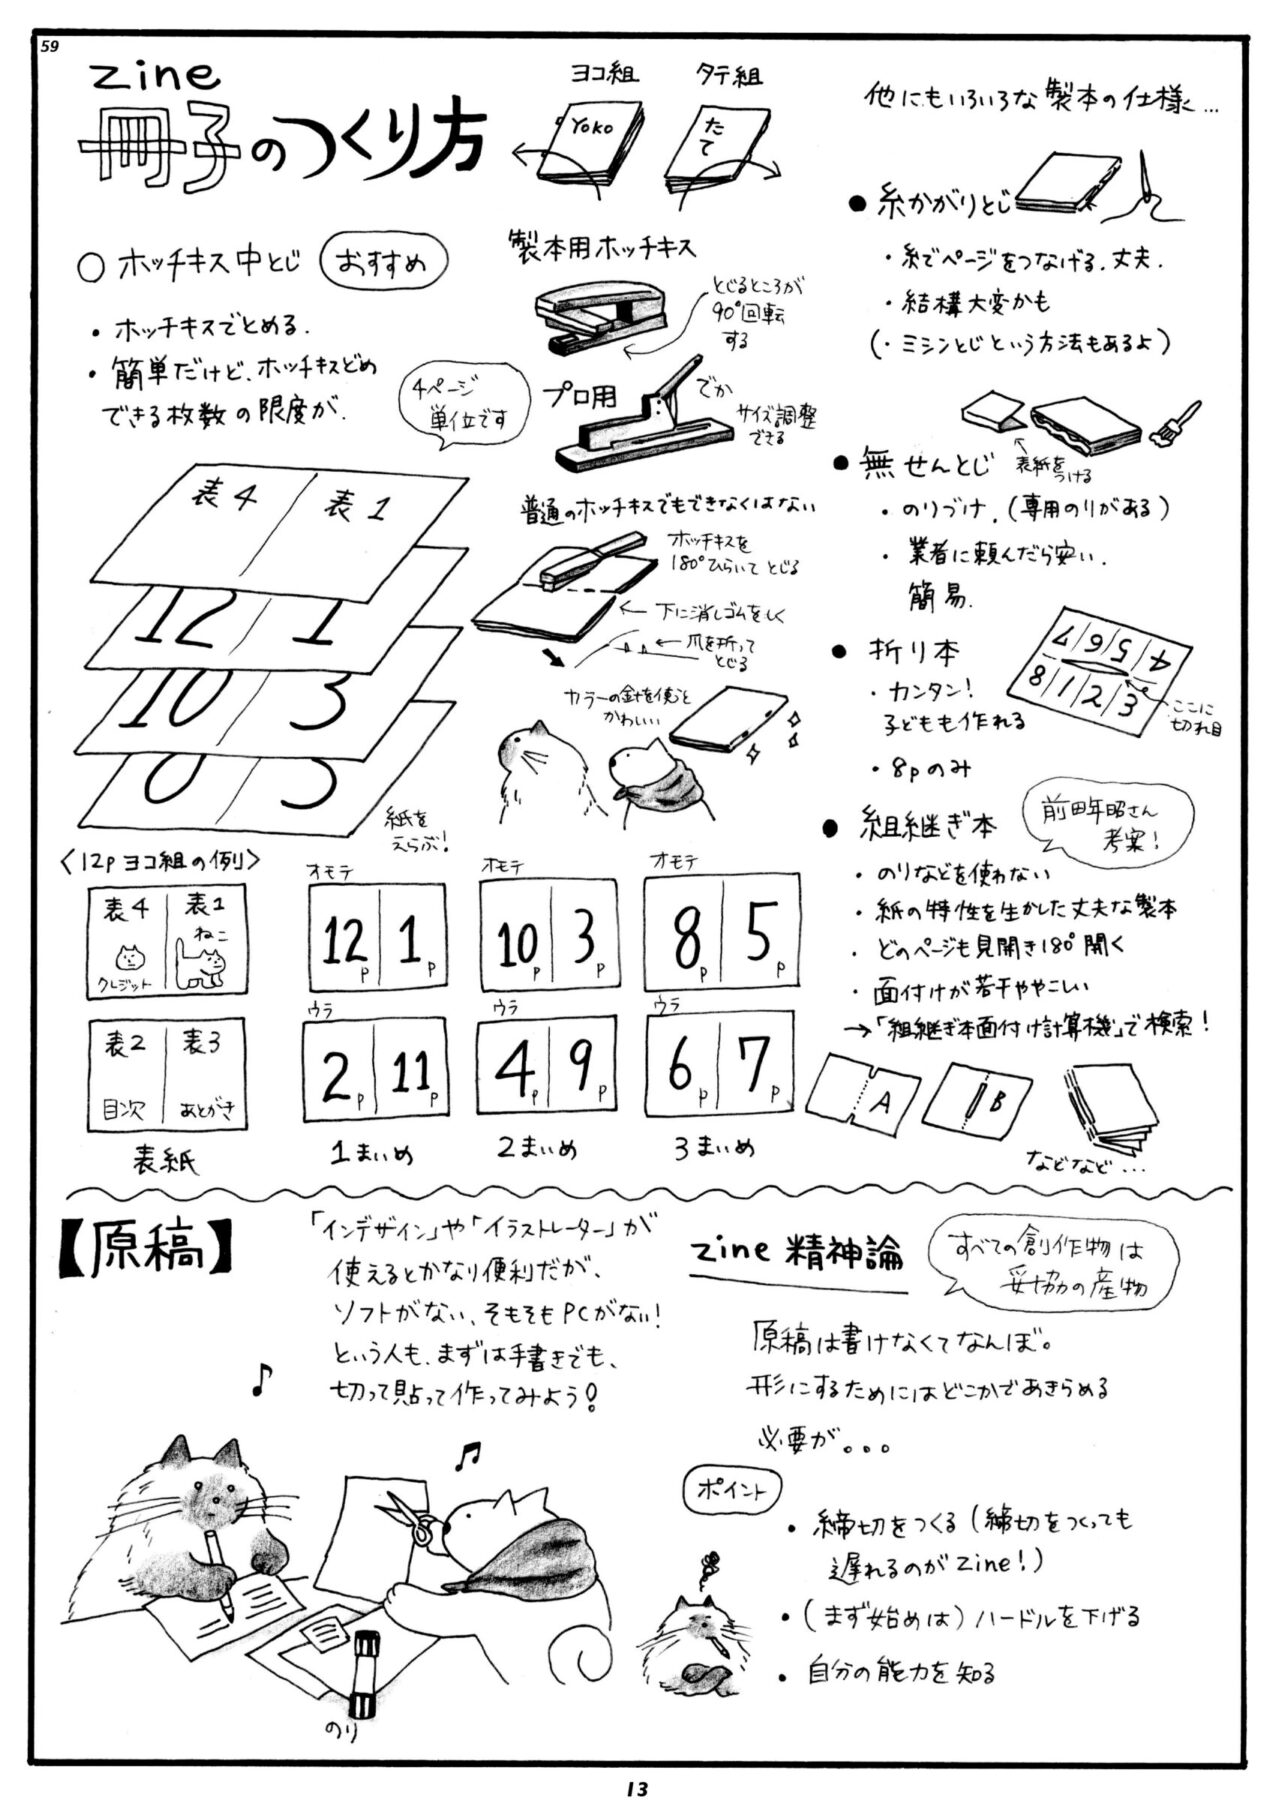 59
zine
冊子のつくり方
ヨコ組
Yoko
タテ組
たて
○ ホッチキス中とじ
おすすめ
・ホッチキスでとめる.
・簡単だけど、ホッチキスどめ
できる枚数の限度が.
4ページ
単位です
製本用ホッチキス
とじるところが
90°回転
する
プロ用
でか
サイズ調整
できる
普通のホッチキスでもできなくはない
ホッチキスを
180°ひらいてとじる
←下に消しゴムをしく
←爪を折って
とじる
カラーの針を使うと
かわいい
表4 表1
12 1
10 3
8 5
紙を
えらぶ!
〈12p ヨコ組の例〉
表4
クレジット
表1
ねこ
表2
目次
表3
あとがき
表紙
オモテ
12p 1p
ウラ
2p 11p
1まいめ
オモテ
10p 3p
ウラ
4p 9p
2まいめ
オモテ
8p 5p
ウラ
6p 7p
3まいめ
他にもいろいろな製本の仕様…
● 糸かがりとじ
・糸でページをつなげる.丈夫.
・結構大変かも
(・ミシンとじという方法もあるよ)
● 無せんとじ
表紙を
つける
・のりづけ.(専用のりがある)
・業者に頼んだら安い.
簡易.
● 折り本
・カンタン!
子どもも作れる
・8pのみ
7 6 5 4
8 1 2 3
ここに
切れ目
● 組継ぎ本
前田年昭さん
考案!
・のりなどを使わない
・紙の特性を生かした丈夫な製本
・どのページも見開き180°開く
・面付けが若干ややこしい
→「組継ぎ本面付け計算機」で検索!
A
B
などなど…
【原稿】
「インデザイン」や「イラストレーター」が
使えるとかなり便利だが、
ソフトがない、そもそもPCがない!
という人も、まずは手書きでも、
切って貼って作ってみよう!
のり
zine 精神論
すべての創作物は
妥協の産物
原稿は書けなくてなんぼ。
形にするためにはどこかであきらめる
必要が。。。
ポイント
・締切をつくる(締切をつくっても
遅れるのがzine!)
・(まず始めは)ハードルを下げる
・自分の能力を知る
13